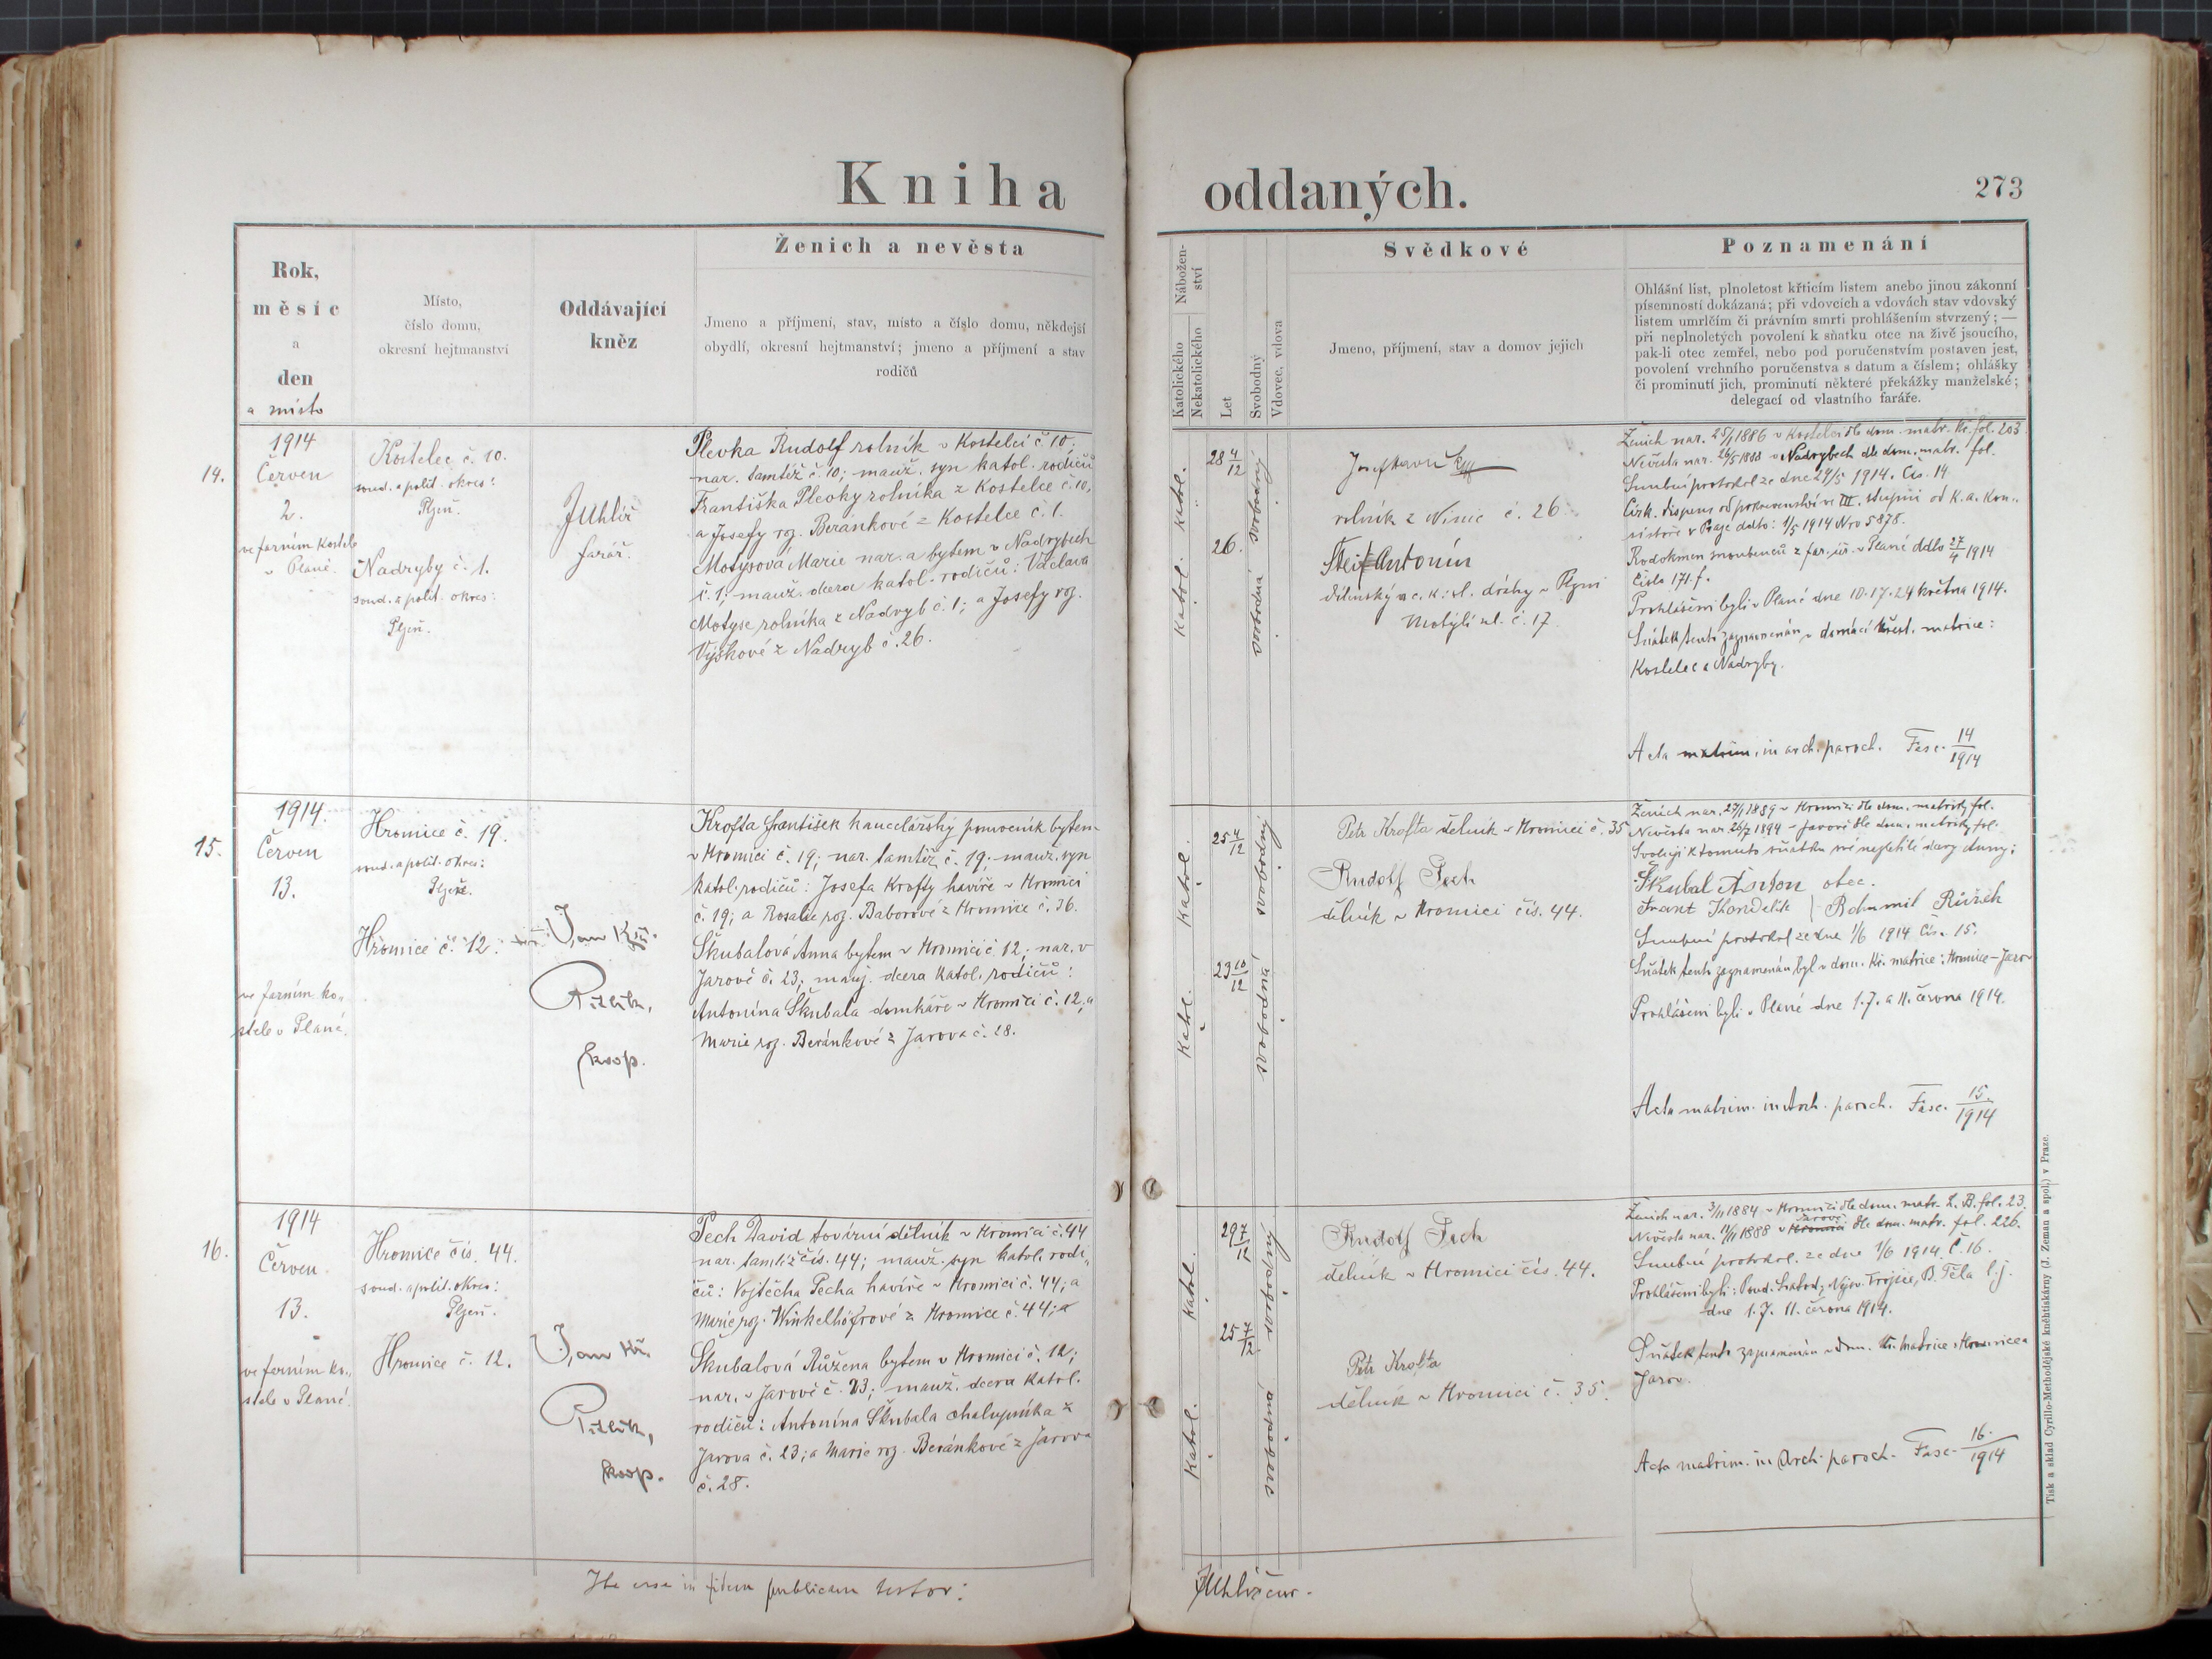 Kniha oddaných.
273
Rok,
měsíc
a
den
a místo
Místo,
číslo domu,
okresní hejtmanství
Oddávající
kněz
Ženich a nevěsta
Jmeno a příjmení, stav, místo a číslo domu, někdejší
obydlí, okresní hejtmanství; jmeno a příjmení a stav
rodičů
Nábožen-
ství
Katolického
Nekatolického
Let
Svobodný
Vdovec, vdova
Svědkové
Jmeno, příjmení, stav a domov jejich
Poznamenání
Ohlášní list, plnoletost křticím listem anebo jinou zákonní
písemností dokázaná; při vdovcích a vdovách stav vdovský
listem umrlčím či právním smrti prohlášením stvrzený; —
při neplnoletých povolení k sňatku otce na živě jsoucího,
pak-li otec zemřel, nebo pod poručenstvím postaven jest,
povolení vrchního poručenstva s datum a číslem; ohlášky
či prominutí jich, prominutí některé překážky manželské;
delegací od vlastního faráře.
14.
1914
Červen
2.
ve farním kostele
v Plané.
Kostelec č. 10.
soud. a polit. okres:
Plzeň.
Nadryby č. 1.
soud. a polit. okres:
Plzeň.
JUhlíř
farář.
Plevka Rudolf rolník v Kostelci č. 10;
nar. tamtéž č. 10; manž. syn katol. rodičů
Františka Plevky rolníka z Kostelce č. 10,
a Josefy roz. Beránkové z Kostelce č. 1.
Motysová Marie nar. a bytem v Nadrybech
č. 1; manž. dcera katol. rodičů: Václava
Motyse rolníka z Nadryb č. 1; a Josefy roz.
Výškové z Nadryb č. 26.
katol.
katol.
28 4/12
26.
svobodný
svobodná
Josef
rolník z Ninic č. 26
Antonín
dílenský u c. k. st. dráhy v Plzni
Motýlí ul. č. 17.
Ženich nar. 25/1 1886 v Kostelci dle dom. matr. Kr. fol. 203
Nevěsta nar. 26/5 1888 v Nadrybech dle dom. matr. fol.
Snubní protokol ze dne 24/5 1914. Čís. 14.
Círk. dispens od pokrevenství ve III. stupni od k. a. kon-
sistoře v Praze ddto: 1/5 1914 Nro 5878.
Rodokmen snoubenců z far. úř. v Plané ddto 27/4 1914
Číslo 171. f.
Prohlášeni byli v Plané dne 10. 17. 24 května 1914.
Sňatek tento zaznamenán v domácí křest. matrice:
Kostelec a Nadryby.
Acta matrim. in arch. paroch. Fasc. 14/1914
15.
1914.
Červen
13.
ve farním ko-
stele v Plané.
Hromice č. 19.
soud. a polit. okres:
Plzeň.
Hromice č. 12.
Jan Kř.
koop.
Krofta František kancelářský pomocník bytem
v Hromici č. 19; nar. tamtéž č. 19; manž. syn
katol. rodičů: Josefa Krofty havíře v Hromici
č. 19; a Rosalie roz. Baborové z Hromice č. 36.
Škubalová Anna bytem v Hromici č. 12; nar. v
Jarově č. 23; manž. dcera katol. rodičů:
Antonína Škubala domkáře v Hromici č. 12, a
Marie roz. Beránkové z Jarova č. 28.
katol.
katol.
25 4/12
23 10/12
svobodný
svobodná
Petr Krofta dělník v Hromici č. 35
Rudolf Pech
dělník v Hromici čís. 44.
Ženich nar. 27/1 1889 v Hromici dle dom. matriky fol.
Nevěsta nar. 26/7 1890 v Jarově dle dom. matriky fol.
Svolují k tomuto sňatku své nezletilé dcery Anny:
Škubal Anton otec.
Frant Bohumil
Snubní protokol ze dne 1/6 1914 Čís. 15.
Sňatek tento zaznamenán byl v dom. kř. matrice: Hromice – Jarov
Prohlášeni byli v Plané dne 1. 7. a 11. června 1914.
Acta matrim. in Arch. paroch. Fasc. 15./1914
16.
1914
Červen
13.
ve farním ko-
stele v Plané.
Hromice čís. 44.
soud. a polit. okres:
Plzeň.
Hromice č. 12.
Jan Kř.
koop.
Pech David tovární dělník v Hromici č. 44
nar. tamtéž čís. 44; manž. syn katol. rodi-
čů: Vojtěcha Pecha havíře v Hromici č. 44; a
Marie roz. Winkelhöfrové z Hromice č. 44; a
Škubalová Růžena bytem v Hromici č. 12;
nar. v Jarově č. 23; manž. dcera katol.
rodičů: Antonína Škubala chalupníka z
Jarova č. 23; a Marie roz. Beránkové z Jarova
č. 28.
katol.
katol.
29 7/12
25 7/12
svobodný
svobodná
Rudolf Pech
dělník v Hromici čís. 44.
Petr Krofta
dělník v Hromici č. 35.
Ženich nar. 3/11 1884 v Hromici dle dom. matr. L. B. fol. 23.
Nevěsta nar. 11/11 1888 v Jarově dle dom. matr. fol. 226.
Snubní protokol ze dne 1/6 1914. Č. 16.
Prohlášeni byli: Nejsv. Trojice, B. Těla t. j.
dne 1. 7. 11. června 1914.
Sňatek tento zaznamenán v dom. kř. matrice Hromice a
Jarov.
Acta matrim. in Arch. paroch. Fasc. 16./1914
Ita esse in fidem publicam testor:
JUhlíř
Tisk a sklad Cyrillo-Methodějské kněhtiskárny (J. Zeman a spol.) v Praze.